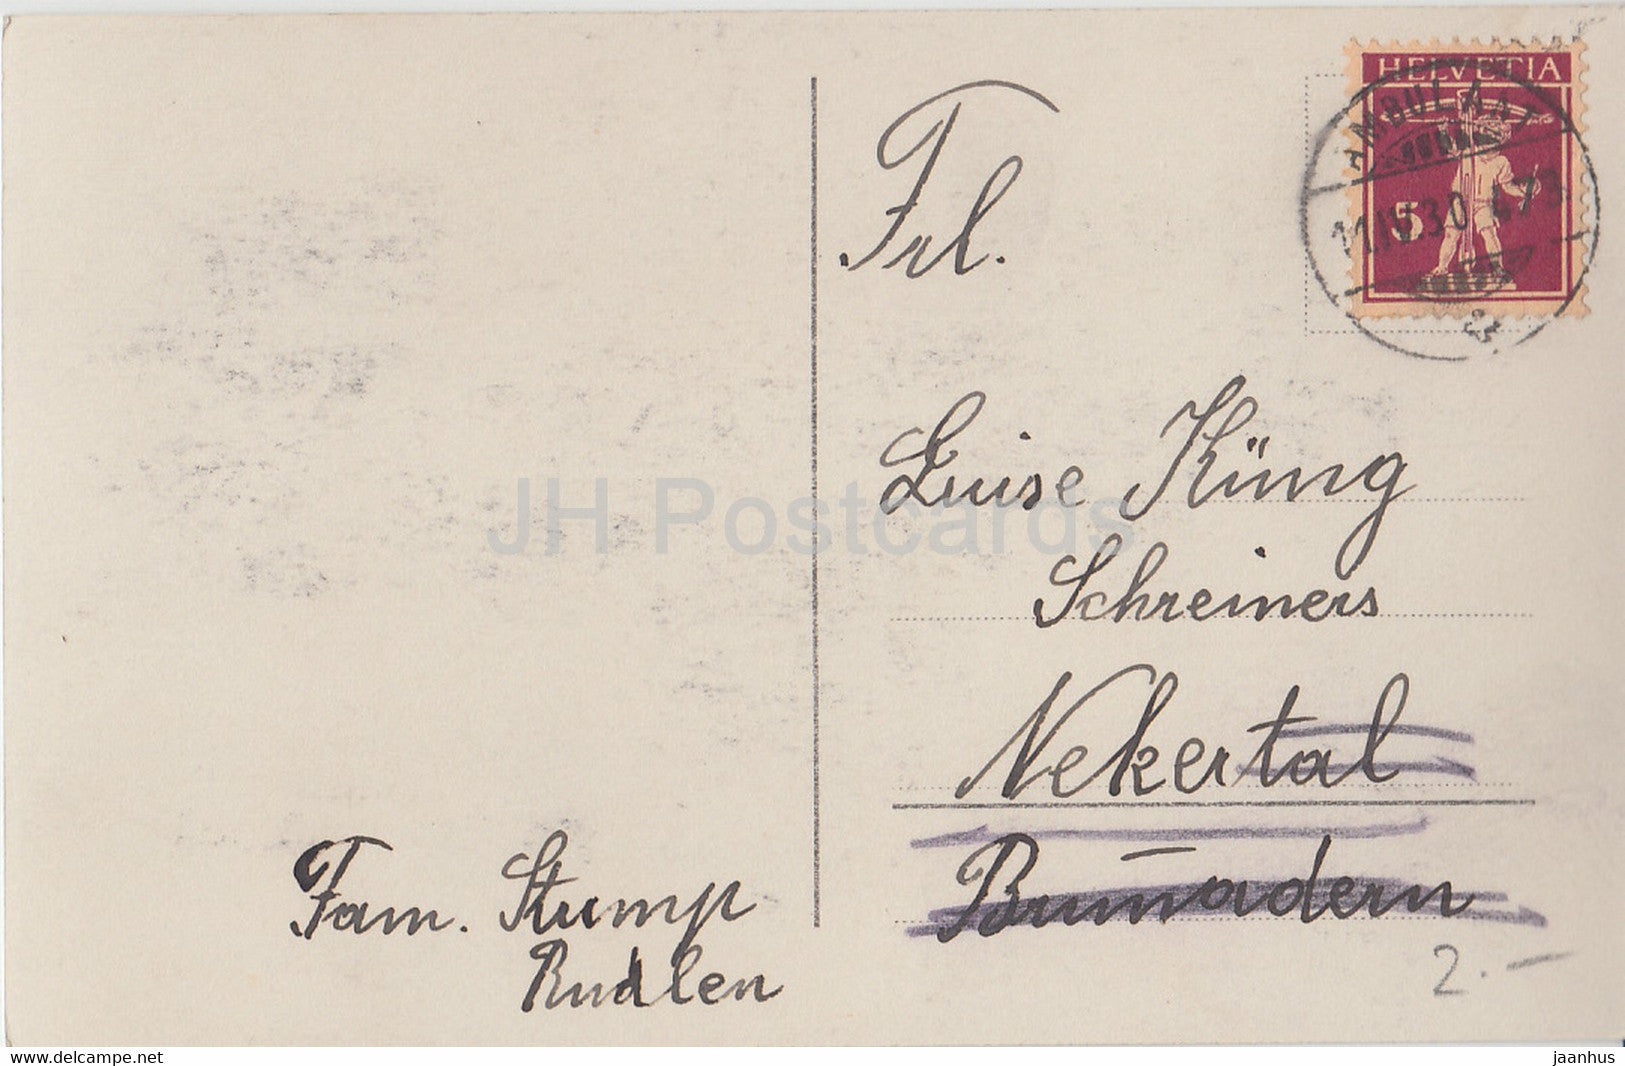 HELVETIA
5
AMBULANT
11.IV.30
Frl.
Luise Küng
Schreiners
Nekertal
Brunadern
Fam. Stump
Rudlen
2.-
JH Postcards
www.delcampe.net
jaanhus